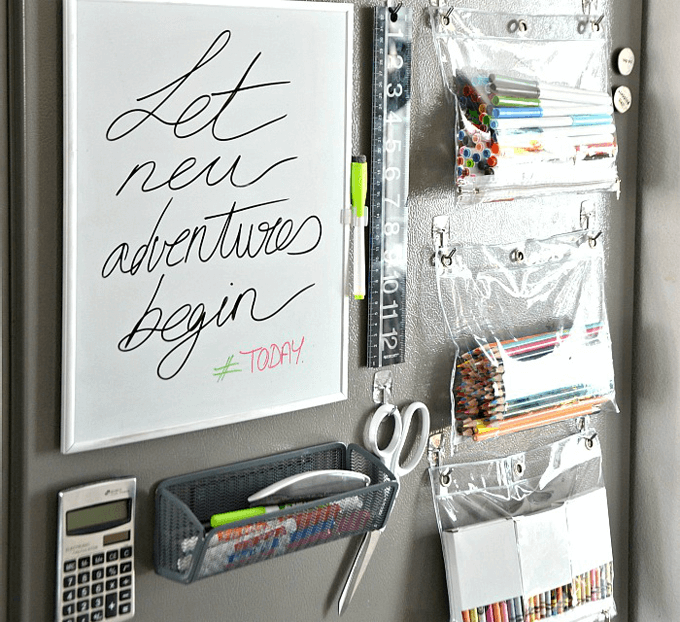 Let
new
adventures
begin
#TODAY.
1
2
3
4
5
6
7
8
9
10
11
12